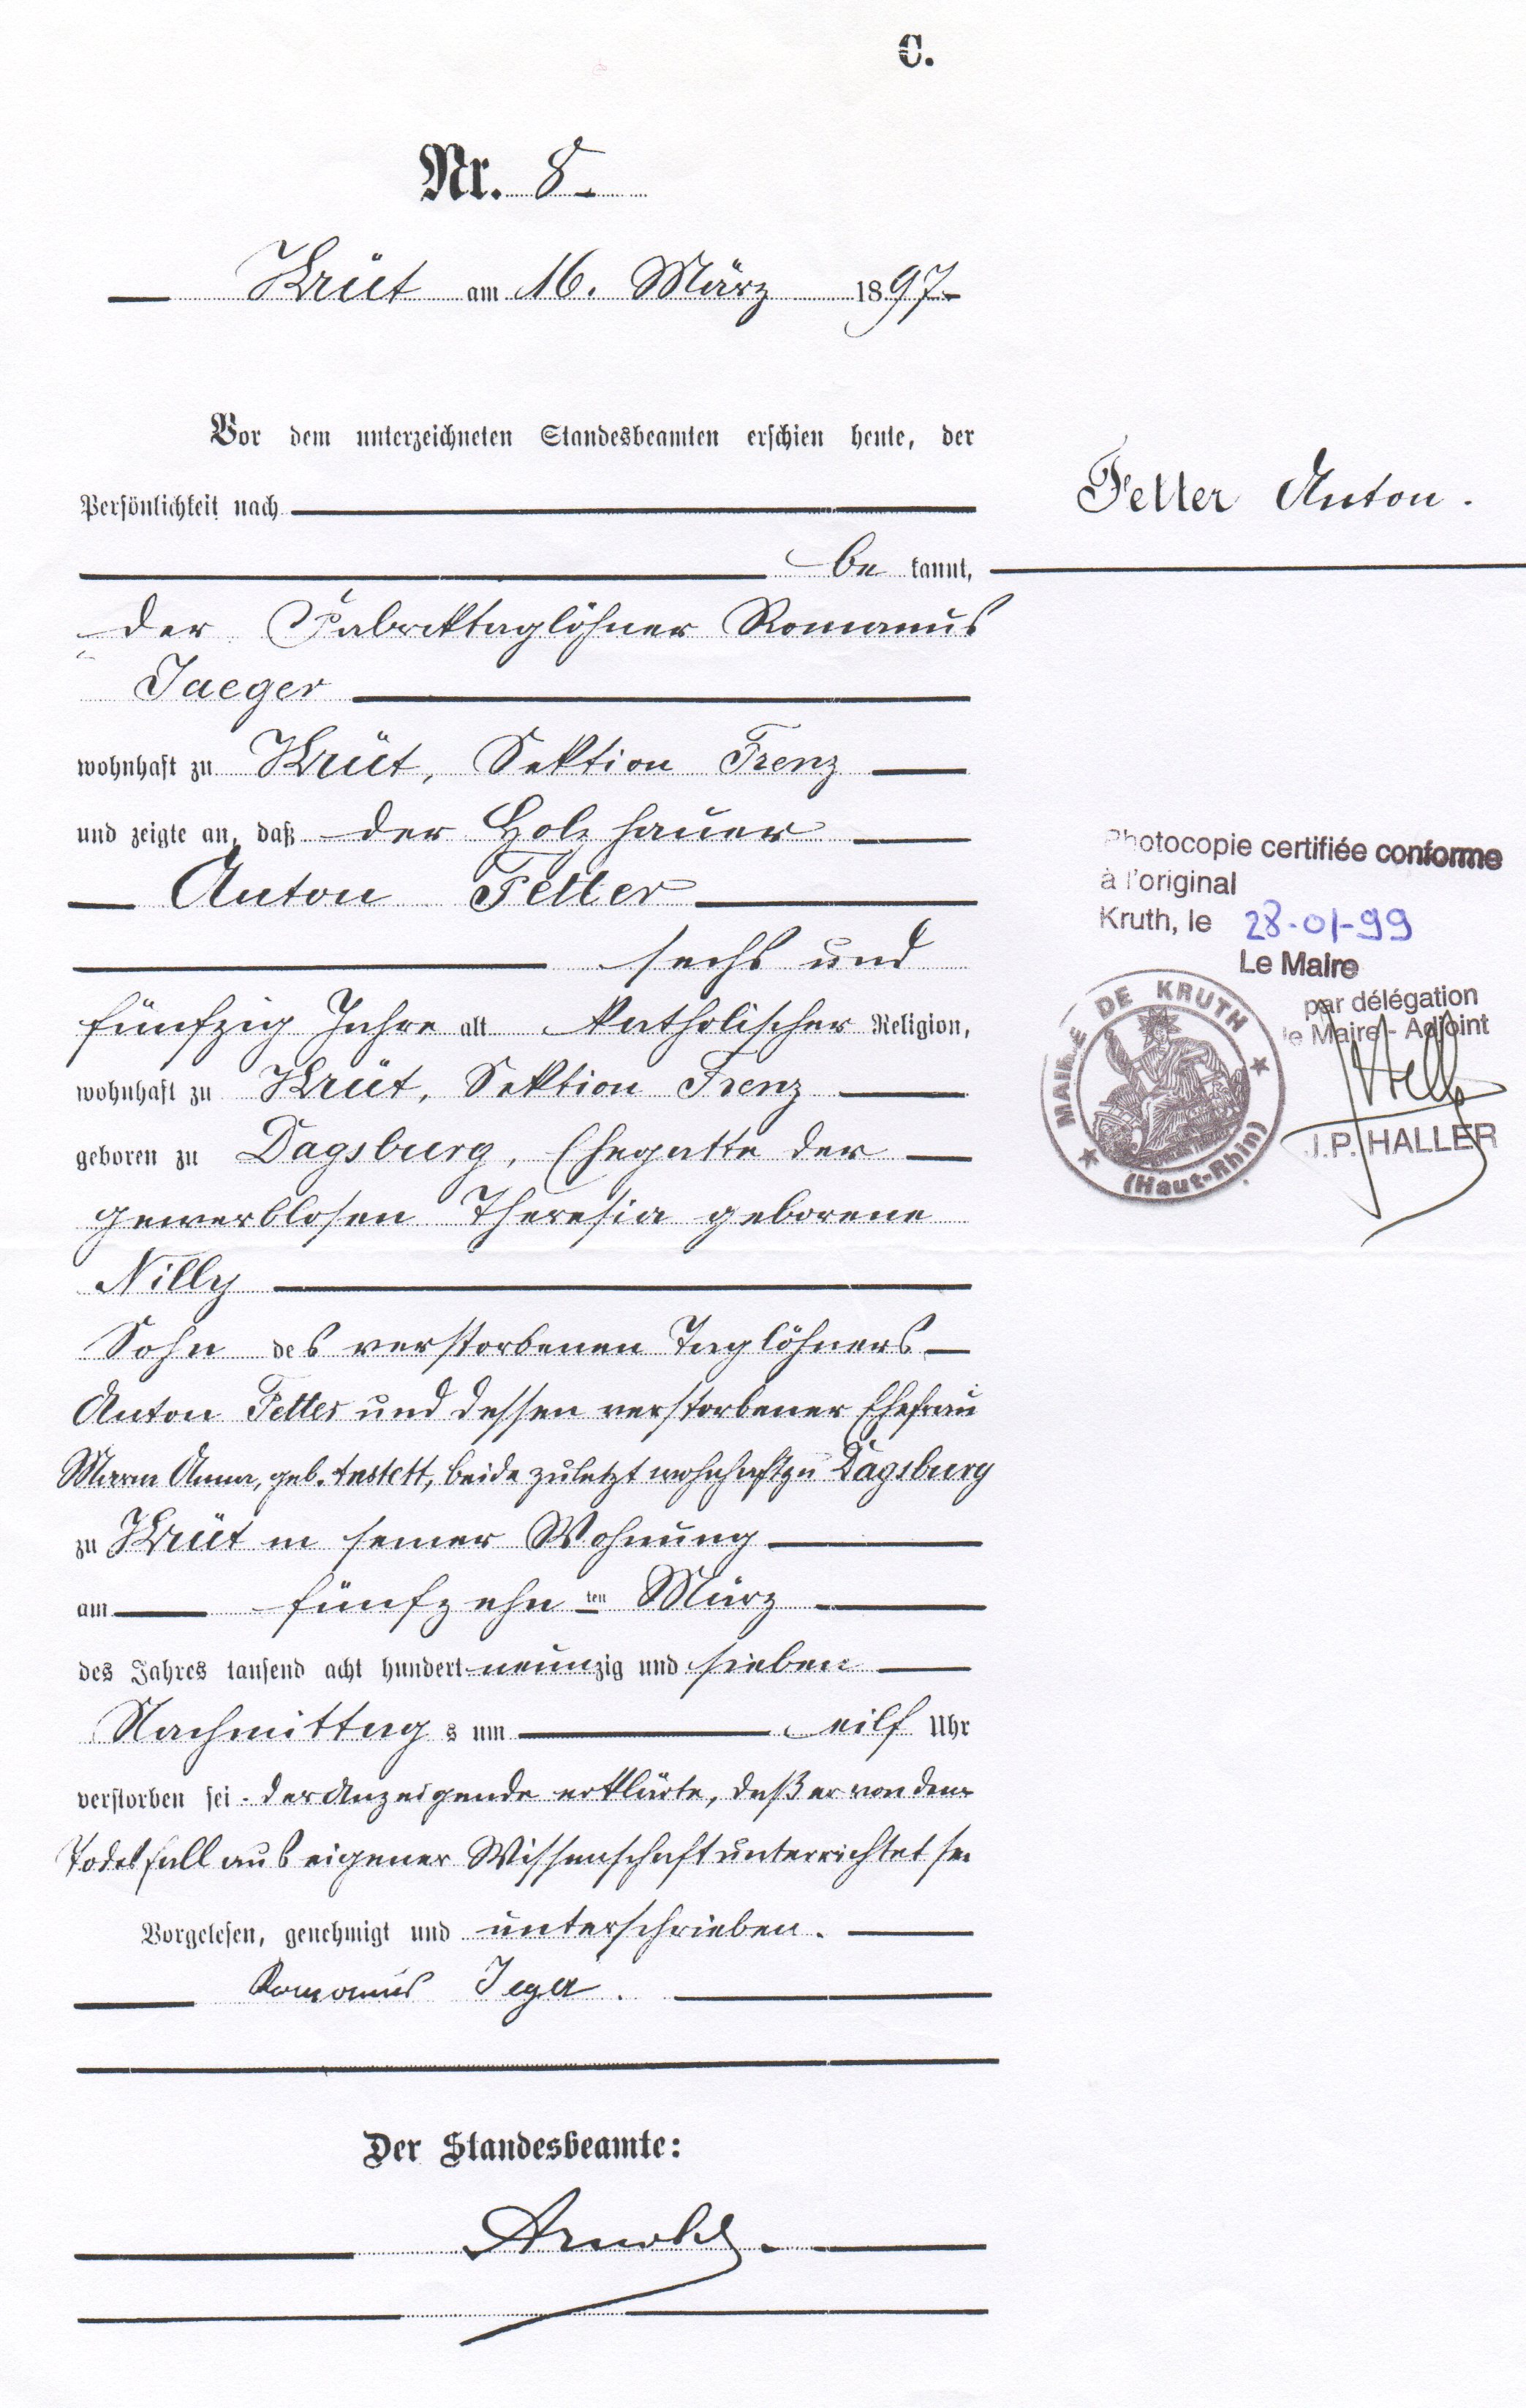 C.
Nr. 8.
Krüt am 16. März 1897.
Vor dem unterzeichneten Standesbeamten erschien heute, der
Persönlichkeit nach
Fetter Anton.
be kannt,
der Fabriktaglöhner Romanus
Jaeger
wohnhaft zu Krüt, Sektion Frenz
und zeigte an, daß der Holzhauer
Anton Fetter
sechs und
fünfzig Jahre alt katholischer Religion,
wohnhaft zu Krüt, Sektion Frenz
geboren zu Dagsburg, Ehegatte der
gewerblosen Theresia geborene
Nilly
Sohn des verstorbenen Taglöhners
Anton Fetter und dessen verstorbener Ehefrau
Maria Anna, geb. Anstett, beide zuletzt wohnhaft zu Dagsburg
zu Krüt in seiner Wohnung
am fünfzehn ten März
des Jahres tausend acht hundert neunzig und sieben
Nachmittag s um eilf Uhr
verstorben sei. der Anzeigende erklärte, daß er von dem
Todesfall aus eigener Wissenschaft unterrichtet sei
Vorgelesen, genehmigt und unterschrieben.
Romanus Jeger.
Der Standesbeamte:
Arnold.
Photocopie certifiée conforme
à l'original
Kruth, le 28-01-99
Le Maire
par délégation
le Maire - Adjoint
J.P. HALLER
MAIRIE DE KRUTH
(Haut-Rhin)